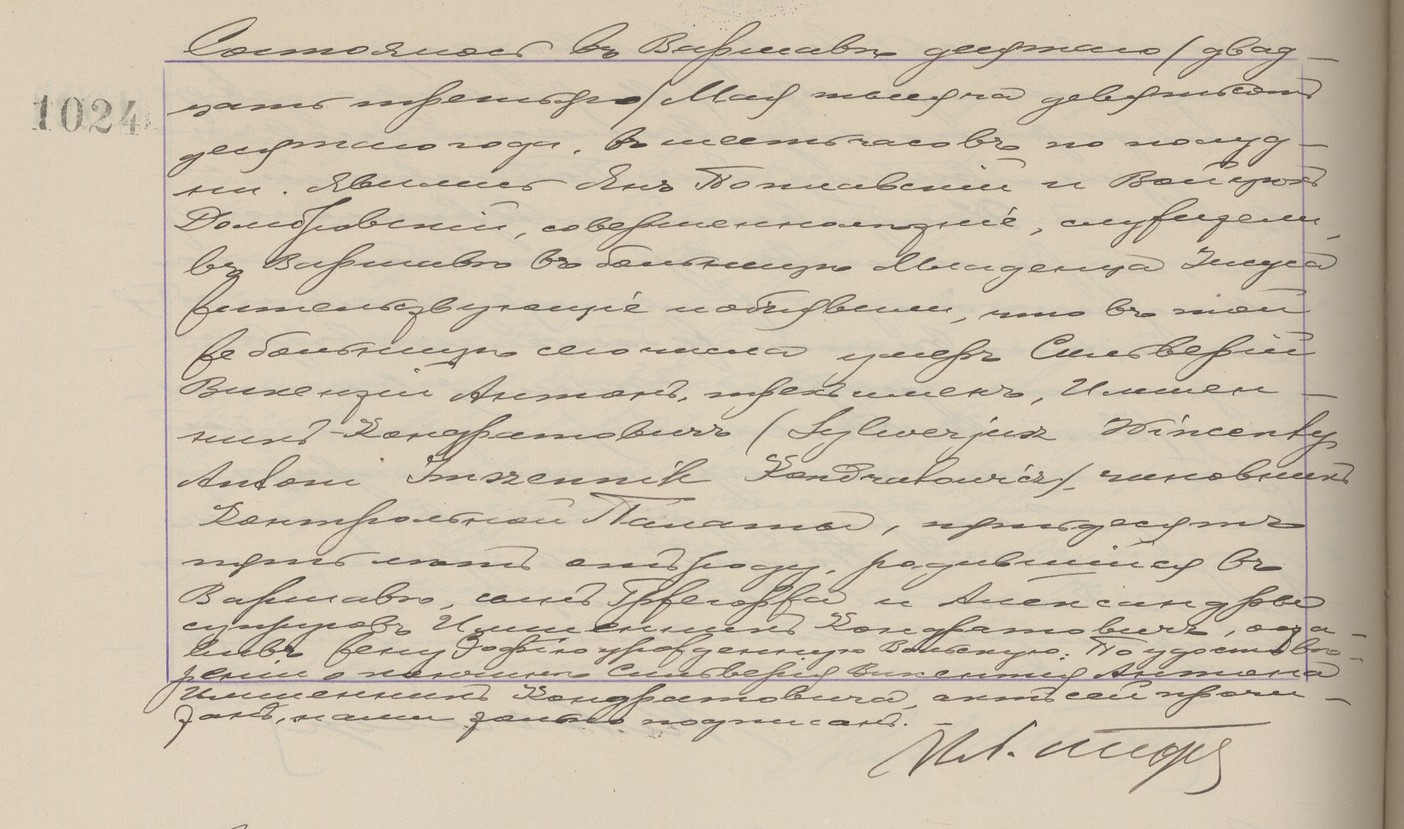 1024
Состоялось въ Варшавѣ десятаго / двад-
цать третьяго / Мая тысяча девятьсотъ
десятаго года, въ шесть часовъ по полуд-
ни. Явились Янъ Поплавскій и Войцехъ
Домбровскій, совершеннолѣтніе, служители,
въ Варшавѣ въ больницѣ Младенца Іисуса
жительствующіе и объявили, что въ той
же больницѣ сего числа умеръ Сильверій
Викентій Антонъ, трехъ именъ, Имшен-
никъ-Кондратовичъ / Sylwerjusz Wincenty
Antoni Imszennik Kondratowicz /, чиновникъ
Контрольной Палаты, пятьдесятъ
пять лѣтъ отъ роду, родившійся въ
Варшавѣ, сынъ Гржегоржа и Александры
супруговъ Имшенникъ Кондратовичъ, оста-
вивъ жену Зофію урожденную Вольскую. По удостовѣ-
реніи о кончинѣ Сильверія Викентія Антона
Имшенникъ Кондратовича, актъ сей прочи-
танъ, нами только подписанъ.